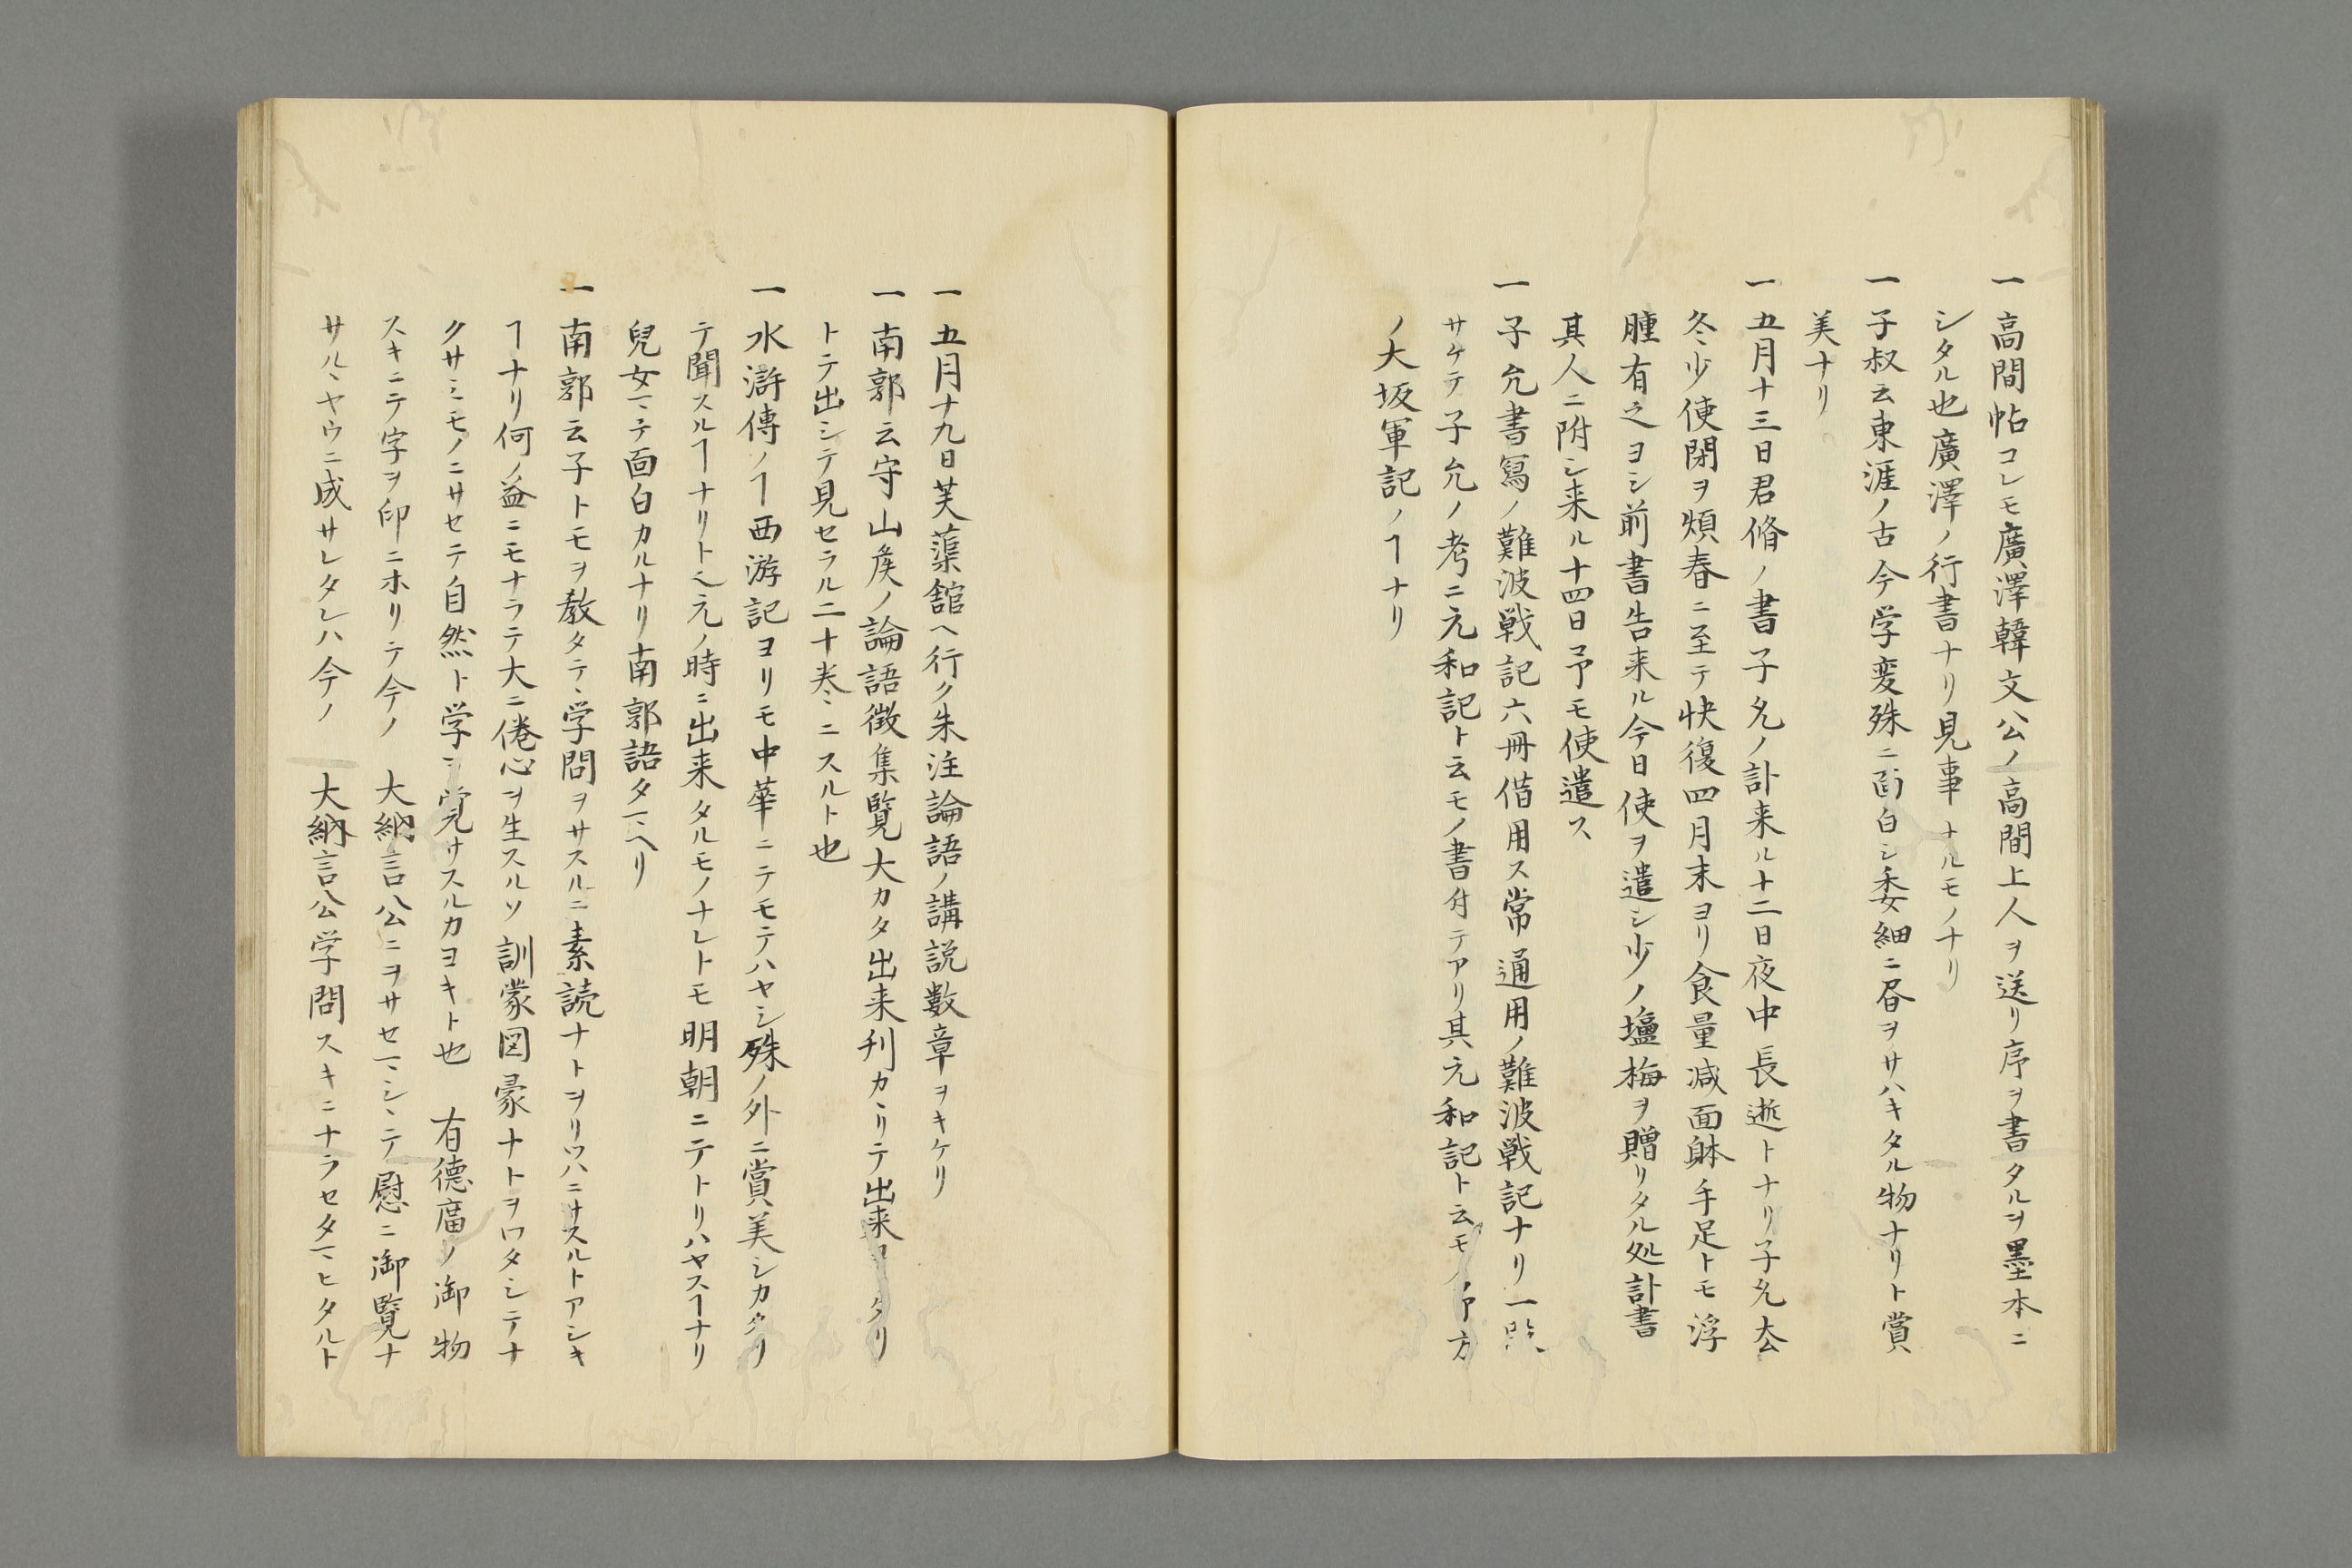 一高間帖コレモ廣澤韓文公ノ高間上人ヲ送リ序ヲ書タルヲ墨本ニ
シタル也廣澤ノ行書ナリ見事ナルモノナリ
一子叔云東涯ノ古今学変殊ニ面白シ委細ニ呑ヲサハキタル物ナリト賞
美ナリ
一五月十三日君脩ノ書子允ノ訃来ル十二日夜中長逝トナリ子允去
冬少便閉ヲ煩春ニ至テ快復四月末ヨリ食量減面躰手足トモ浮
腫有之ヨシ前書告来ル今日使ヲ遣シ少ノ塩梅ヲ贈リタル処訃書
其人ニ附シ来ル十四日予モ使遣ス
一子允書寫ノ難波戦記六冊借用ス常通用ノ難波戦記ナリ一段
サケテ子允ノ考ニ元和記ト云モノ書付テアリ其元和記ト云モノ予方
ノ大坂軍記ノヿナリ
一五月十九日芙蕖舘ヘ行ク朱注論語ノ講説數章ヲキケリ
一南郭云守山矦ノ論語徴集覽大カタ出来刋カヽリテ出来ヨタリ
トテ出シテ見セラル二十巻ニスルト也
一水滸傳ノヿ西游記ヨリモ中華ニテモテハヤシ殊ノ外ニ賞美シカタリ
テ聞スルヿナリト之元ノ時ニ出来タルモノナレトモ明朝ニテトリハヤスヿナリ
兒女マテ面白カルナリ南郭語タマヘリ
一南郭云子トモヲ教タテヽ学問ヲサスルニ素読ナトヲリツハニサスルトアシキ
ヿナリ何ノ益ニモナラテ大ニ倦心ヲ生スルソ訓蒙図彙ナトヲワタシテナ
クサミモノニサセテ自然ト学ヲ覚サスルカヨキト也　有德庿ノ御物
スキニテ字ヲ印ニホリテ今ノ　大納言公ニヲサセマシヽテ慰ニ御覽ナ
サルヽヤウニ成サレタレハ今ノ　大納言公学問スキニナラセタマヒタルト